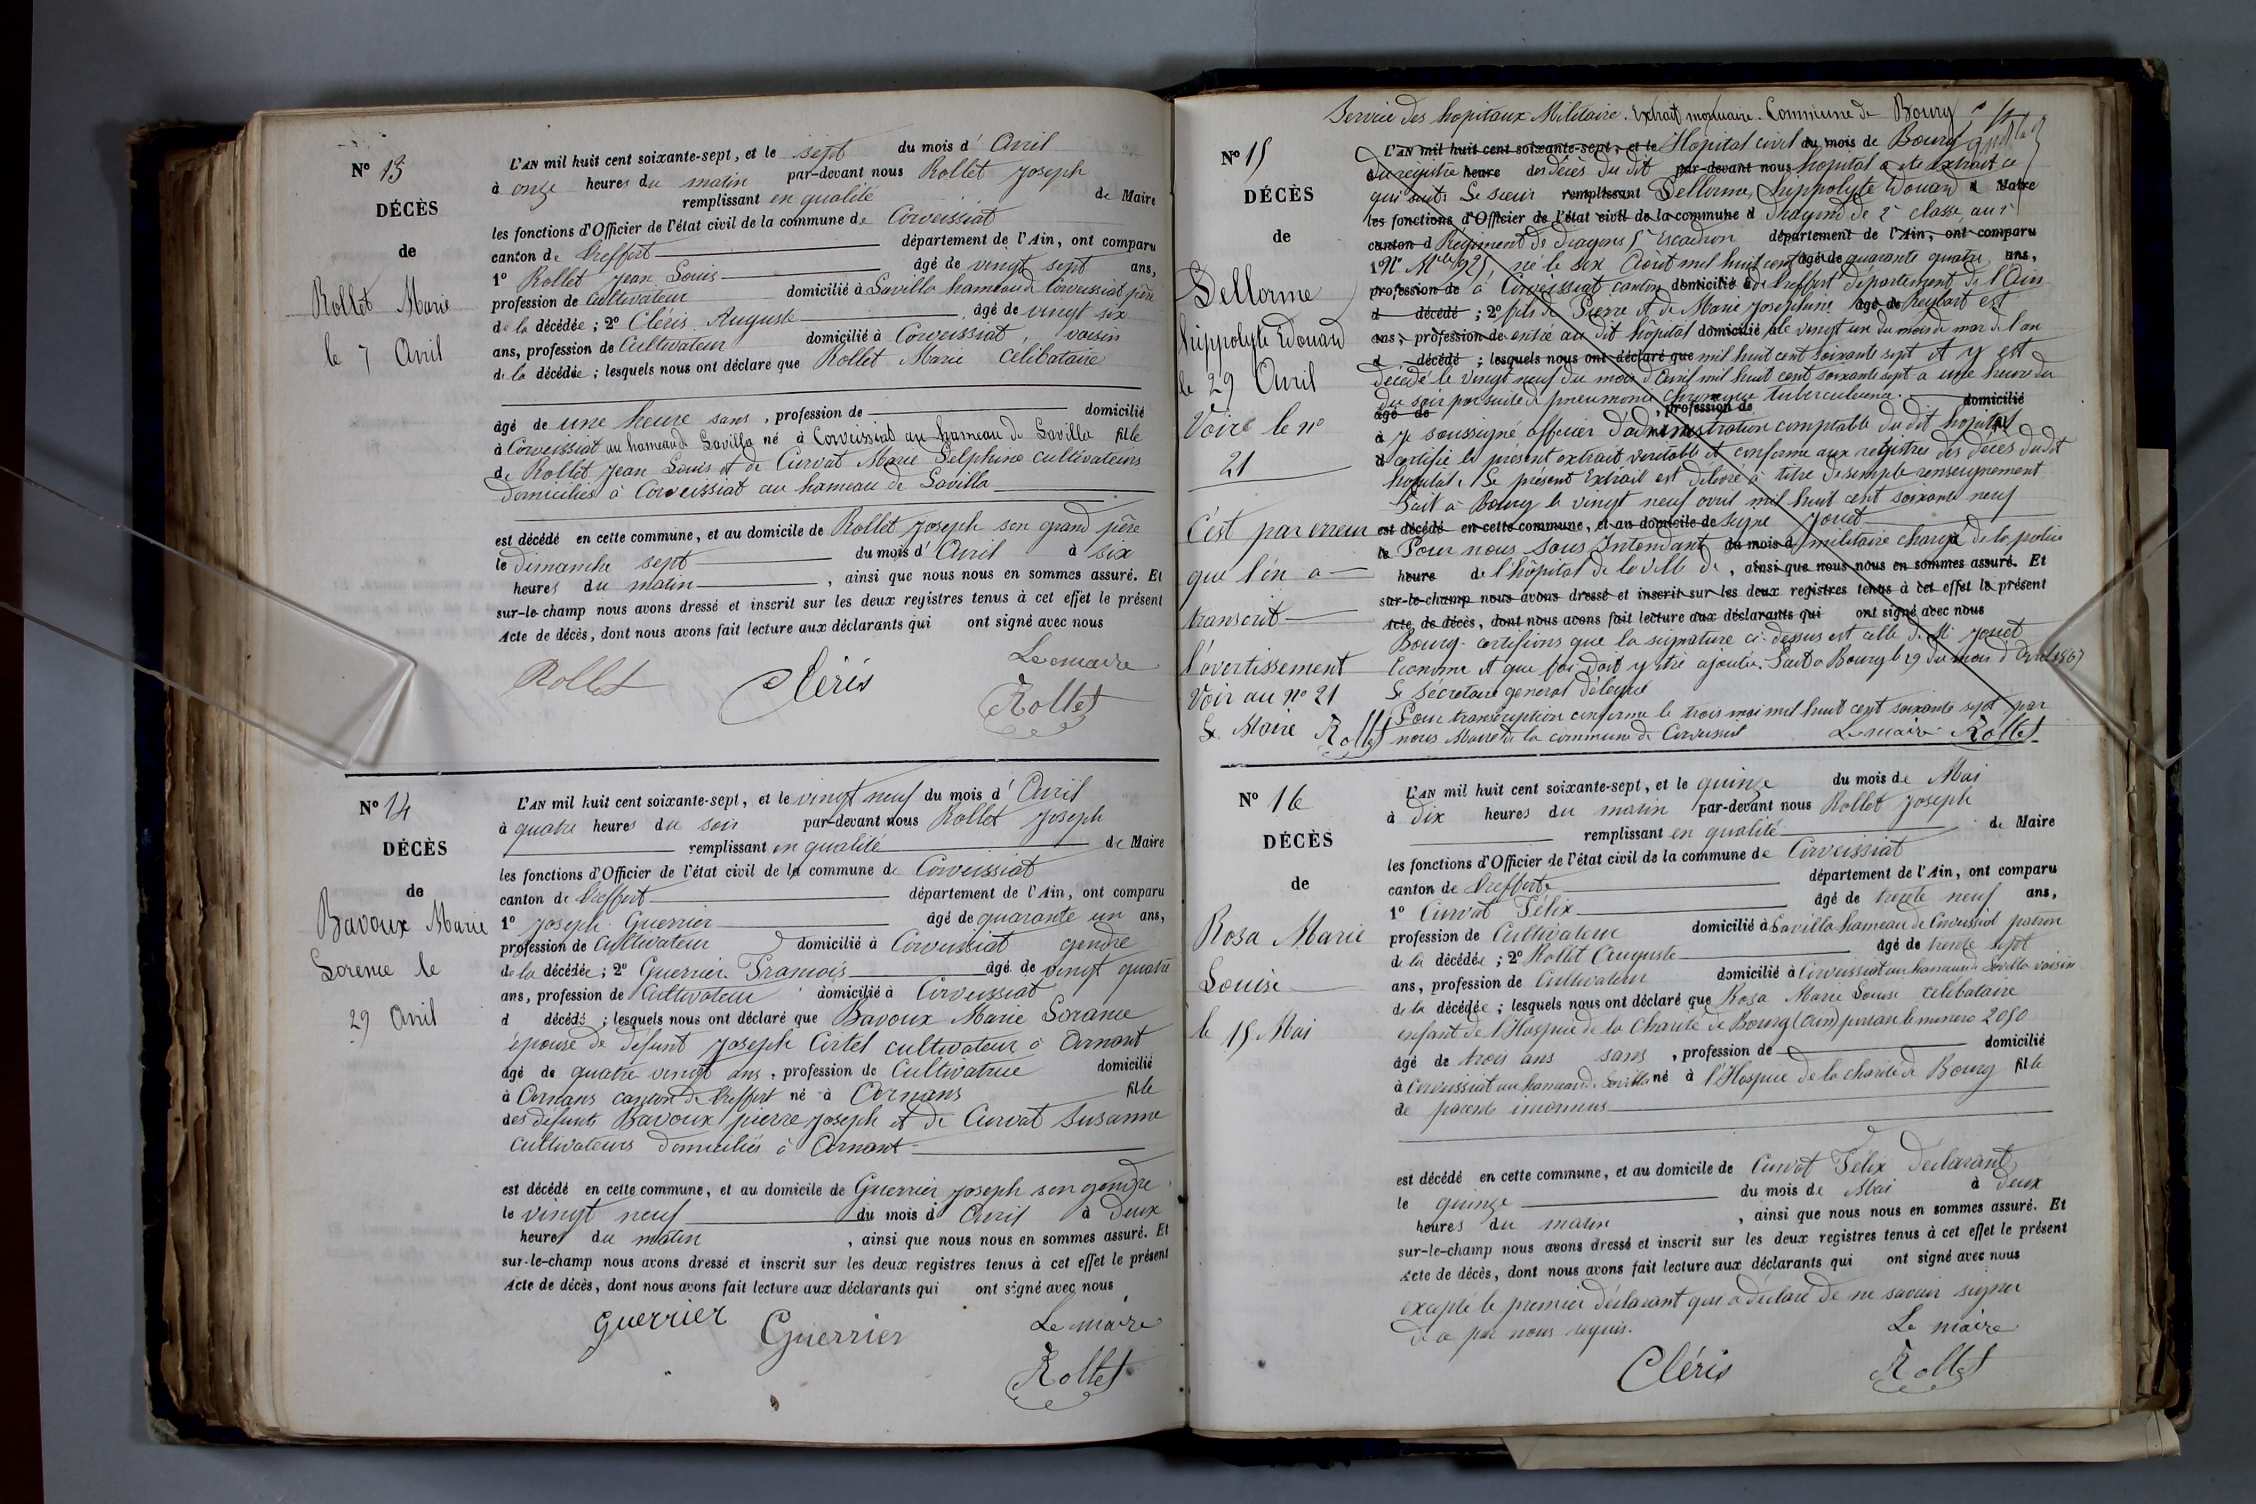 N° 13
DÉCÈS
de
Rollet Marie
le 7 Avril
L'AN mil huit cent soixante-sept, et le sept du mois d'Avril
à onze heures du matin par-devant nous Rollet Joseph
remplissant en qualité de Maire
les fonctions d'Officier de l'état civil de la commune de Corveissiat
canton de Treffort département de l'Ain, ont comparu
1° Rollet Jean Louis âgé de vingt sept ans,
profession de Cultivateur domicilié à Savilla hameau de Corveissiat père
de la décédée ; 2° Cléris Auguste âgé de vingt six
ans, profession de Cultivateur domicilié à Corveissiat, voisin
de la décédée ; lesquels nous ont déclaré que Rollet Marie Célibataire
âgé de une heure sans, profession de domicilié
à Corveissiat au hameau de Savilla né à Corveissiat au hameau de Savilla fille
de Rollet Jean Louis et de Curvat Marie Delphine cultivateurs
domiciliés à Corveissiat au hameau de Savilla
est décédé en cette commune, et au domicile de Rollet Joseph son grand père
le dimanche sept du mois d'Avril à six
heures du matin, ainsi que nous nous en sommes assuré. Et
sur-le-champ nous avons dressé et inscrit sur les deux registres tenus à cet effet le présent
Acte de décès, dont nous avons fait lecture aux déclarants qui ont signé avec nous
Le maire
Rollet Cléris Rollet
N° 14
DÉCÈS
de
Bavoux Marie
Lorence le
29 Avril
L'AN mil huit cent soixante-sept, et le vingt neuf du mois d'Avril
à quatre heures du soir par-devant nous Rollet Joseph
remplissant en qualité de Maire
les fonctions d'Officier de l'état civil de la commune de Corveissiat
canton de Treffort département de l'Ain, ont comparu
1° Joseph Guerrier âgé de quarante un ans,
profession de Cultivateur domicilié à Corveissiat gendre
de la décédée ; 2° Guerrier François âgé de vingt quatre
ans, profession de Cultivateur domicilié à Corveissiat
d décédé ; lesquels nous ont déclaré que Bavoux Marie Lorance
épouse de défunt Joseph cultivateur à Arnant
âgé de quatre vingt ans, profession de Cultivatrice domicilié
à Cornans canton de Treffort né à Cornans fille
des défunts Bavoux pierre Joseph et de Curvat Susanne
cultivateurs domiciliés à Arnant
est décédé en cette commune, et au domicile de Guerrier Joseph son gendre
le vingt neuf du mois d'Avril à deux
heures du matin, ainsi que nous nous en sommes assuré. Et
sur-le-champ nous avons dressé et inscrit sur les deux registres tenus à cet effet le présent
Acte de décès, dont nous avons fait lecture aux déclarants qui ont signé avec nous
Guerrier Guerrier Le maire
Rollet
Service des hopitaux Militaire. Extrait mortuaire. Commune de Bourg
N° 15
DÉCÈS
de
Dellorme
hippolyte Edouard
le 29 Avril
Voire le n°
21
C'est par erreur
que l'en a
transcrit
l'avertissement
Voir au n° 21
Le Maire Rollet
L'AN mil huit cent soixante-sept, et le Hopital civil du mois de Bourg
Du registre heure des décès du dit par-devant nous hopital a été extrait ce
qui suit. Le sieur remplissant Dellorme, hippolyte Edouard d Maire
les fonctions d'Officier de l'état civil de la commune d Dragons de 2e classe, au 5e
canton d Régiment de Dragons 5e Escadron département de l'Ain, ont comparu
1° N° Mle 925 né le six Août mil huit cent âgé de quarante quatre ans,
profession de à Corveissiat canton domicilié à de Treffort département de l'Ain
d décédé ; 2° fils de Pierre et de Marie Josephine âgé de Reybart est
ans, profession de entré au dit hôpital domicilié à le vingt un du mois de mars de l'an
d décédé ; lesquels nous ont déclaré que mil huit cent soixante sept et y est
décédé le vingt neuf du mois d'Avril mil huit cent soixante sept a une heure du
âgé de du soir par suite de pneumonie chronique, profession de tuberculeuse. domicilié
à Je soussigné officier d'administration comptable du dit hopital
d certifie le présent extrait véritable et conforme aux registres des décès du dit
hopital. Le présent Extrait est délivré à titre de simple renseignement
Fait à Bourg le vingt neuf avril mil huit cent soixante neuf
est décédé en cette commune, et au domicile de signé Jouet
le Pour nous Sous Intendant du mois d militaire chargé de la police
heure de l'hôpital de la ville de, ainsi que nous nous en sommes assuré. Et
sur-le-champ nous avons dressé et inscrit sur les deux registres tenus à cet effet le présent
Acte de décès, dont nous avons fait lecture aux déclarants qui ont signé avec nous
Bourg certifions que la signature ci-dessus est celle de M. Jouet
Econome et que foi doit y être ajoutée. Fait à Bourg le 29 du mois d'Avril 1867
Le Secrétaire général délégué
Pour transcription conforme le trois mai mil huit cent soixante sept par
nous Maire de la commune de Corveissiat Le maire Rollet
N° 16
DÉCÈS
de
Rosa Marie
Louise
le 15 Mai
L'AN mil huit cent soixante-sept, et le quinze du mois de Mai
à dix heures du matin par-devant nous Rollet Joseph
remplissant en qualité de Maire
les fonctions d'Officier de l'état civil de la commune de Corveissiat
canton de Treffort département de l'Ain, ont comparu
1° Curvat Félix âgé de trente neuf ans,
profession de Cultivateur domicilié à Savilla hameau de Corveissiat patron
de la décédée ; 2° Rollet Auguste âgé de trente sept
ans, profession de Cultivateur domicilié à Corveissiat au hameau de Savilla voisin
de la décédée ; lesquels nous ont déclaré que Rosa Marie Louise célibataire
enfant de l'Hospice de la Charité de Bourg (Ain) portant le numéro 2050
âgé de trois ans sans, profession de domicilié
à Corveissiat au hameau de Savilla né à l'Hospice de la charité de Bourg fille
de parents inconnus
est décédé en cette commune, et au domicile de Curvat Félix déclarant
le quinze du mois de Mai à deux
heures du matin, ainsi que nous nous en sommes assuré. Et
sur-le-champ nous avons dressé et inscrit sur les deux registres tenus à cet effet le présent
Acte de décès, dont nous avons fait lecture aux déclarants qui ont signé avec nous
excepté le premier déclarant qui a déclaré de ne savoir signer
de ce par nous requis. Le maire
Cléris Rollet